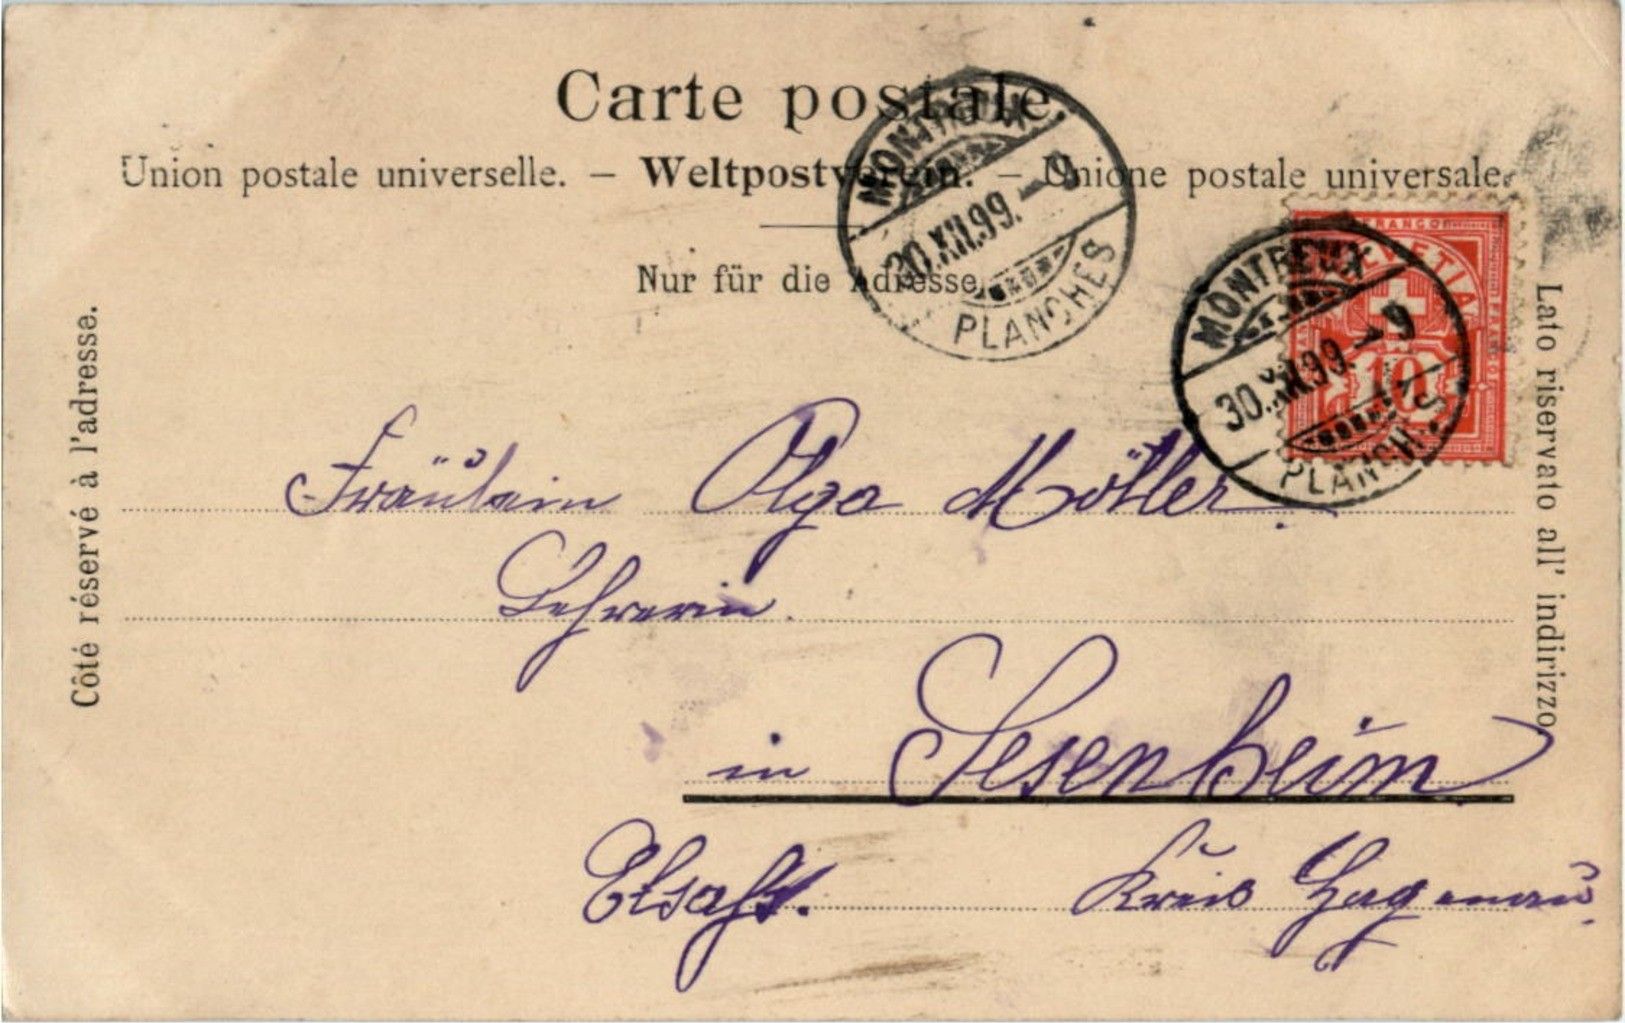 Carte postale.
Union postale universelle. – Weltpostverein. – Unione postale universale.
Nur für die Adresse.
Côté réservé à l'adresse.
Lato riservato all' indirizzo
MONTREUX
30.XII.99.–9
PLANCHES
FRANCO
HELVETIA
10
MONTREUX
30.XII.99.–9
PLANCHES
Fräulein Olga
Lehrerin.
in Sesenheim
Elsaß. Kreis Hagenau.